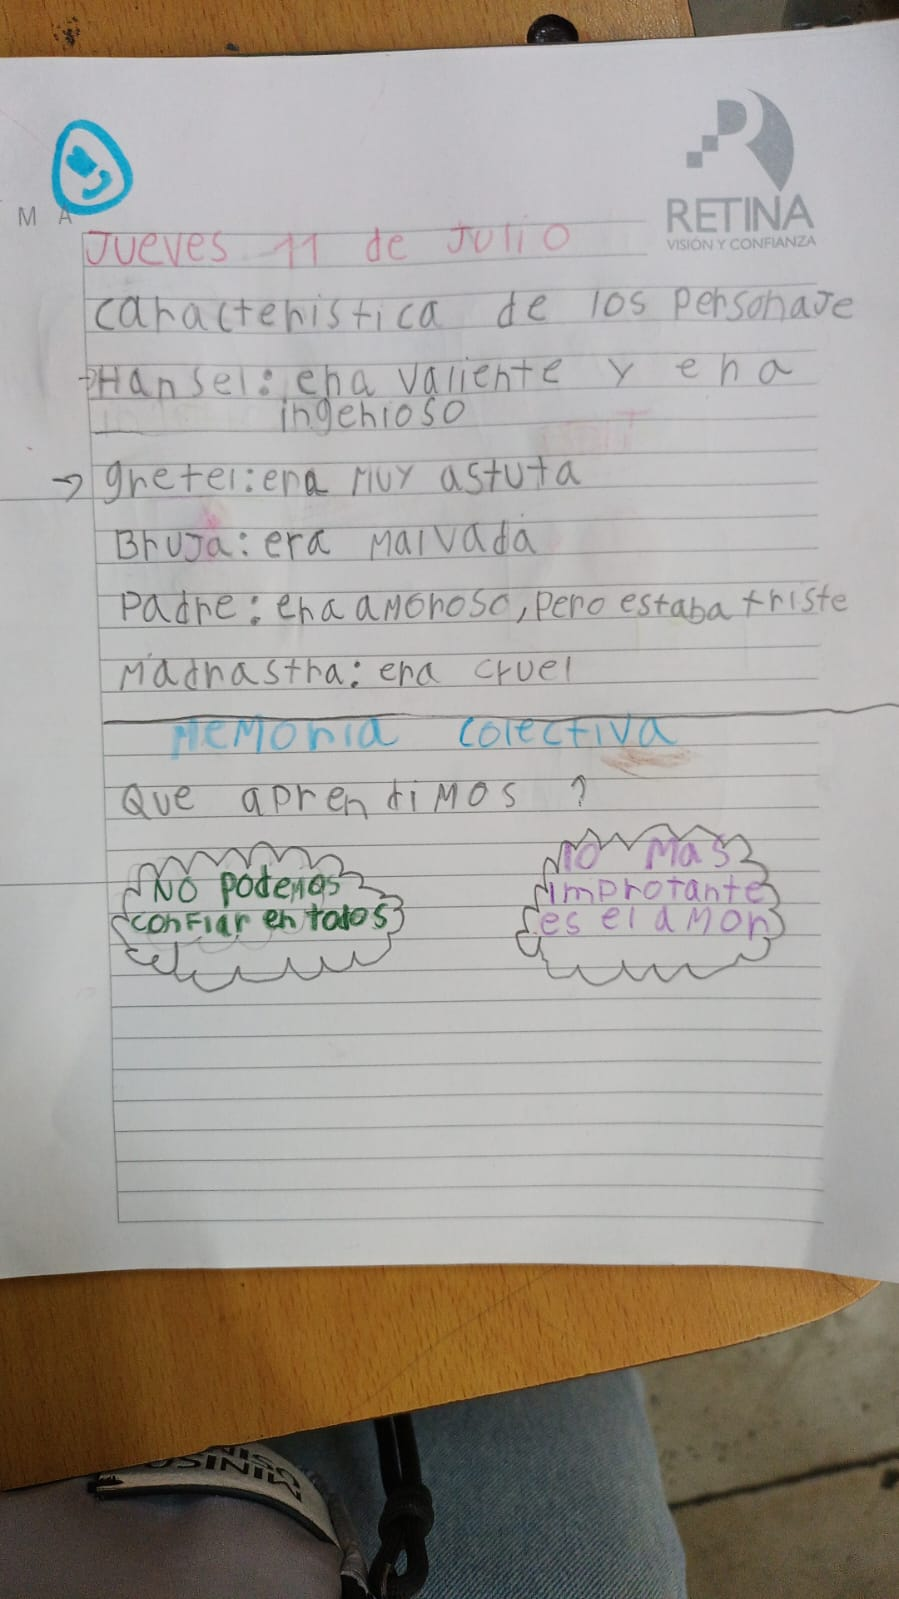 M A
RETINA
VISIÓN Y CONFIANZA
Jueves 11 de Julio
caracteristica de los personaje
Hansel: era valiente y era
ingenioso
gretel: era muy astuta
Bruja: era malvada
Padre: era amoroso, pero estaba triste
Madrastra: era cruel
Memoria colectiva
Que aprendimos ?
No podemos
confiar en todos
lo mas
improtante
es el amor
MINISO